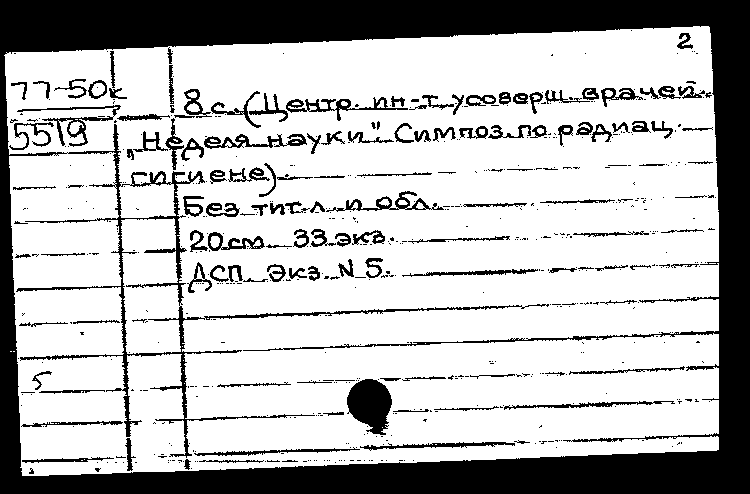 2
77-50к
5519
8 с. (Центр. ин-т усоверш. врачей.
„Неделя науки". Симпоз. по радиац.
гигиене).
Без тит. л. и обл.
20 см. 33 экз.
ДСП. Экз. N 5.
5